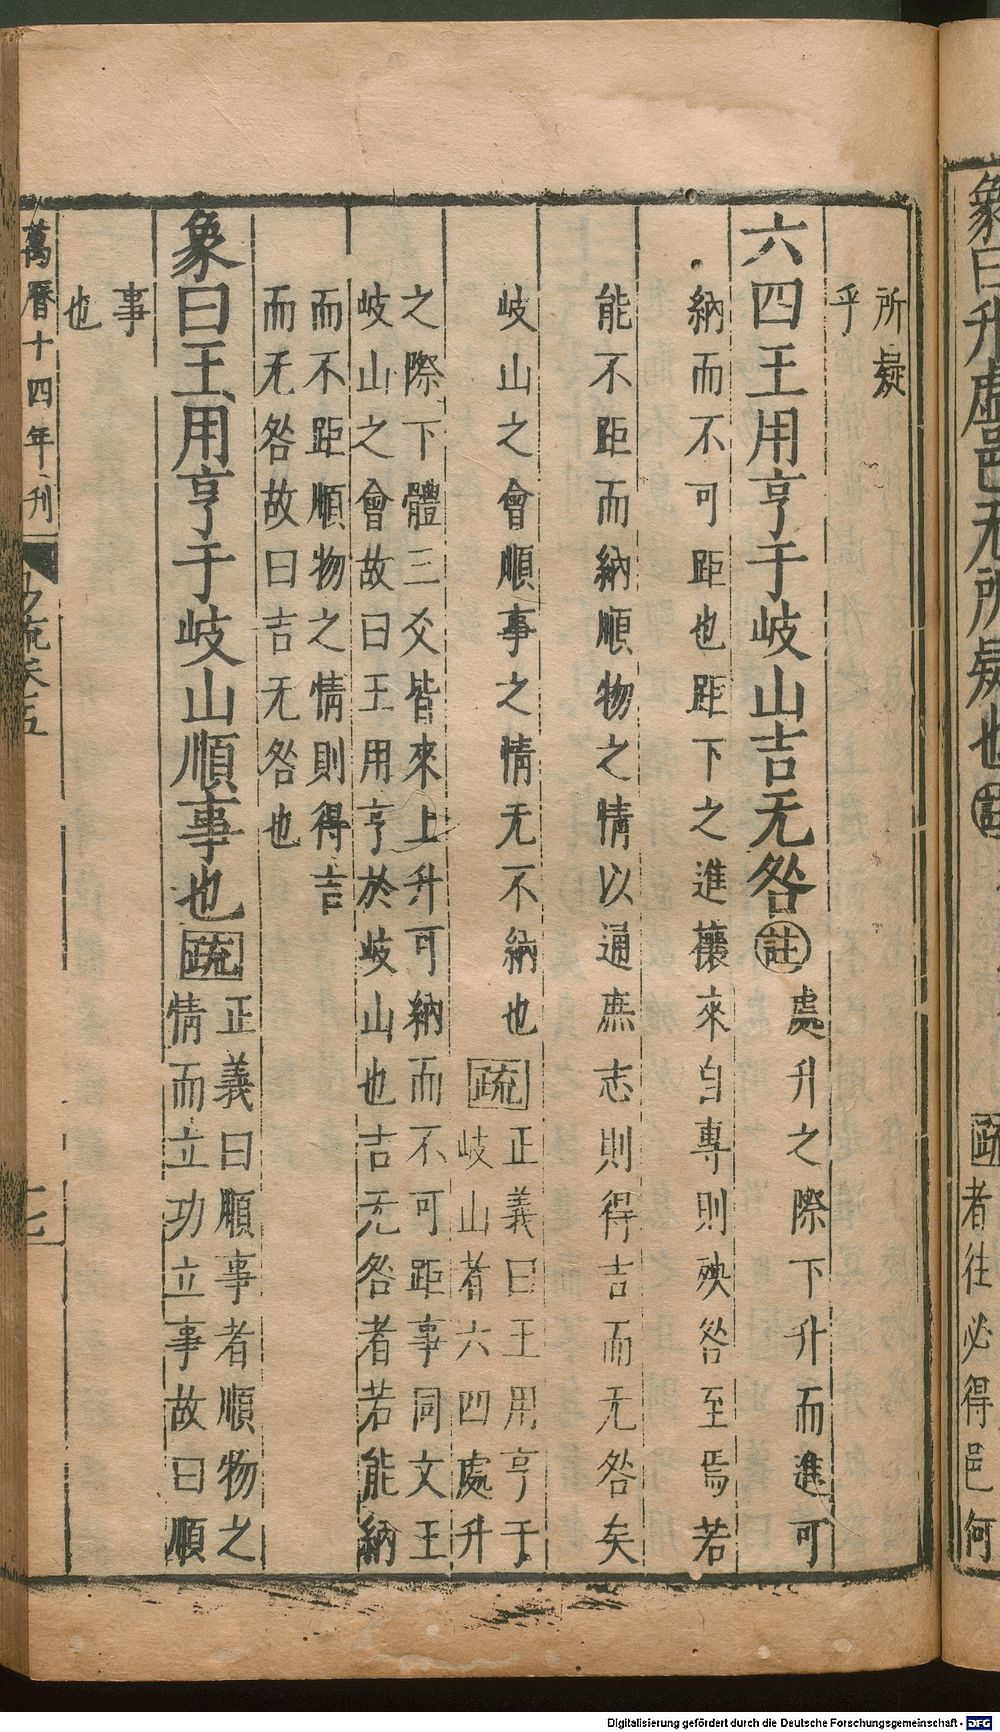 象曰升虛邑无所疑也註
疏者往必得邑何
所疑
乎
六四王用亨于岐山吉无咎註處升之際下升而進可
納而不可距也距下之進攘來自專則殃咎至焉若
能不距而納順物之情以通庶志則得吉而无咎矣
岐山之會順事之情无不納也疏正義曰王用亨于
岐山者六四處升
之際下體三爻皆來上升可納而不可距事同文王
岐山之會故曰王用亨於岐山也吉无咎者若能納
而不距順物之情則得吉
而无咎故曰吉无咎也
象曰王用亨于岐山順事也疏正義曰順事者順物之
情而立功立事故曰順
事
也
萬曆十四年刊
Digitalisierung gefördert durch die Deutsche Forschungsgemeinschaft - DFG